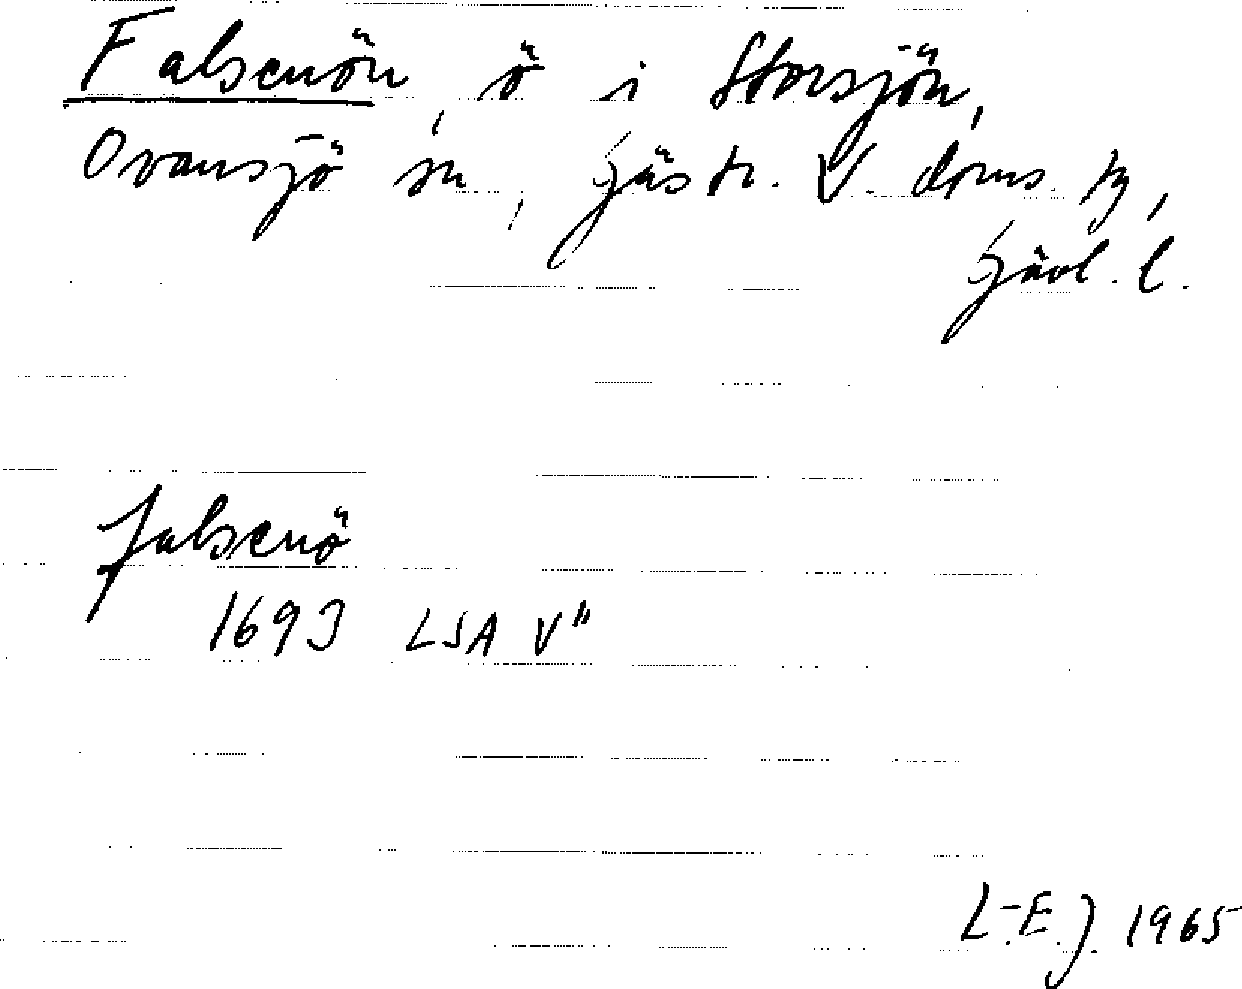 Falsenön, ö i Storsjön,
Ovansjö sn, Gästr. V. doms. tg,
Gävl. l.
falsenö
1693 LSA V"
L-E. J. 1965